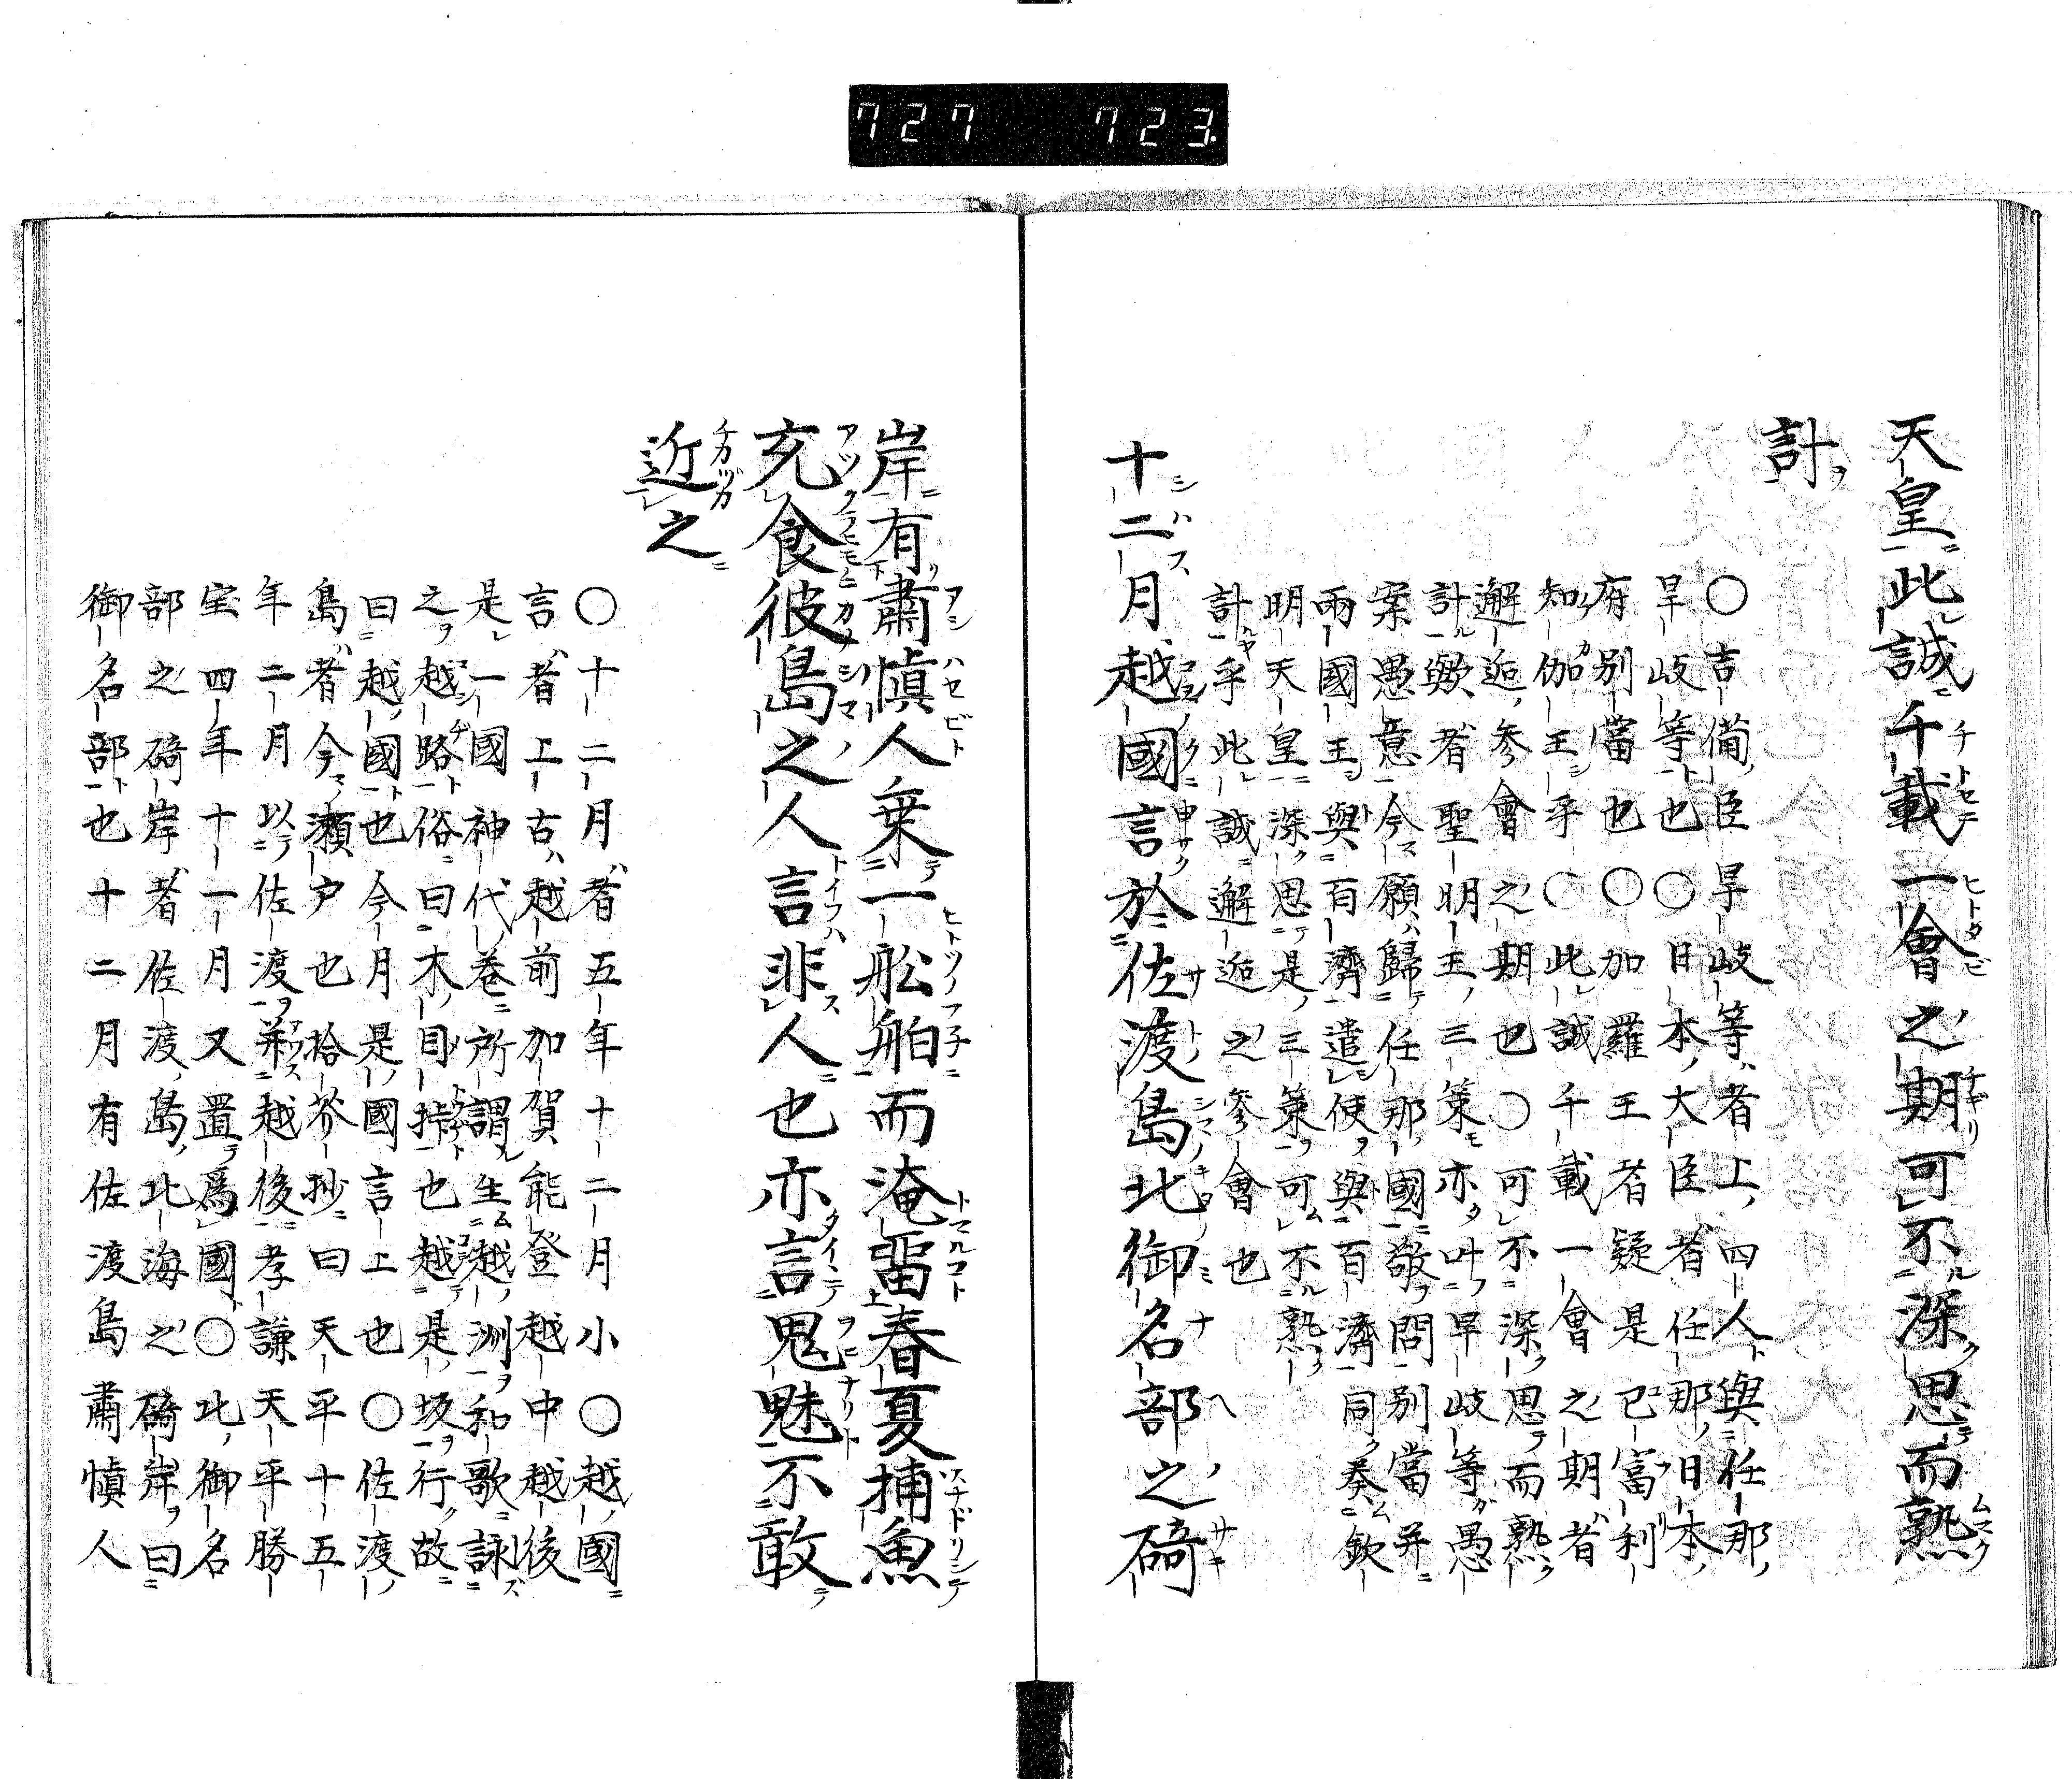 727 723
天皇此誠千載一會之期可不深思而熟
計
〇吉備臣旱岐等者上四人與任那
旱岐等也〇日本大臣者任那日本
府別當也〇加羅王者疑是已富利
知伽王乎〇此誠千載一會之期者
邂逅參會之期也〇可不深思而熟
計歟者聖明王三策亦叶旱岐等愚
案愚意今願歸任那國敬問別當并
兩國王與百濟遣使與百濟同奏欽
明天皇深思是三策可不熟
計乎此誠邂逅之參會也
十二月越國言於佐渡島北御名部之碕
岸有肅愼人乗一舩舶而淹畱春夏捕魚
充食彼島之人言非人也亦言鬼魅不敢
近之
〇十二月者五年十二月小〇越國
言者上古越前加賀能登越中越後
是一國神代巻所謂生越洲和歌詠
之越路俗曰木目挊也越是坂行故
曰越國也今月是國言上也〇佐渡
島者今瀬戸也拾芥抄曰天平十五
年二月以佐渡并越後孝謙天平勝
宝四年十一月又置爲國〇北御名
部之碕岸者佐渡島北海之碕岸曰
御名部也十二月有佐渡島肅愼人